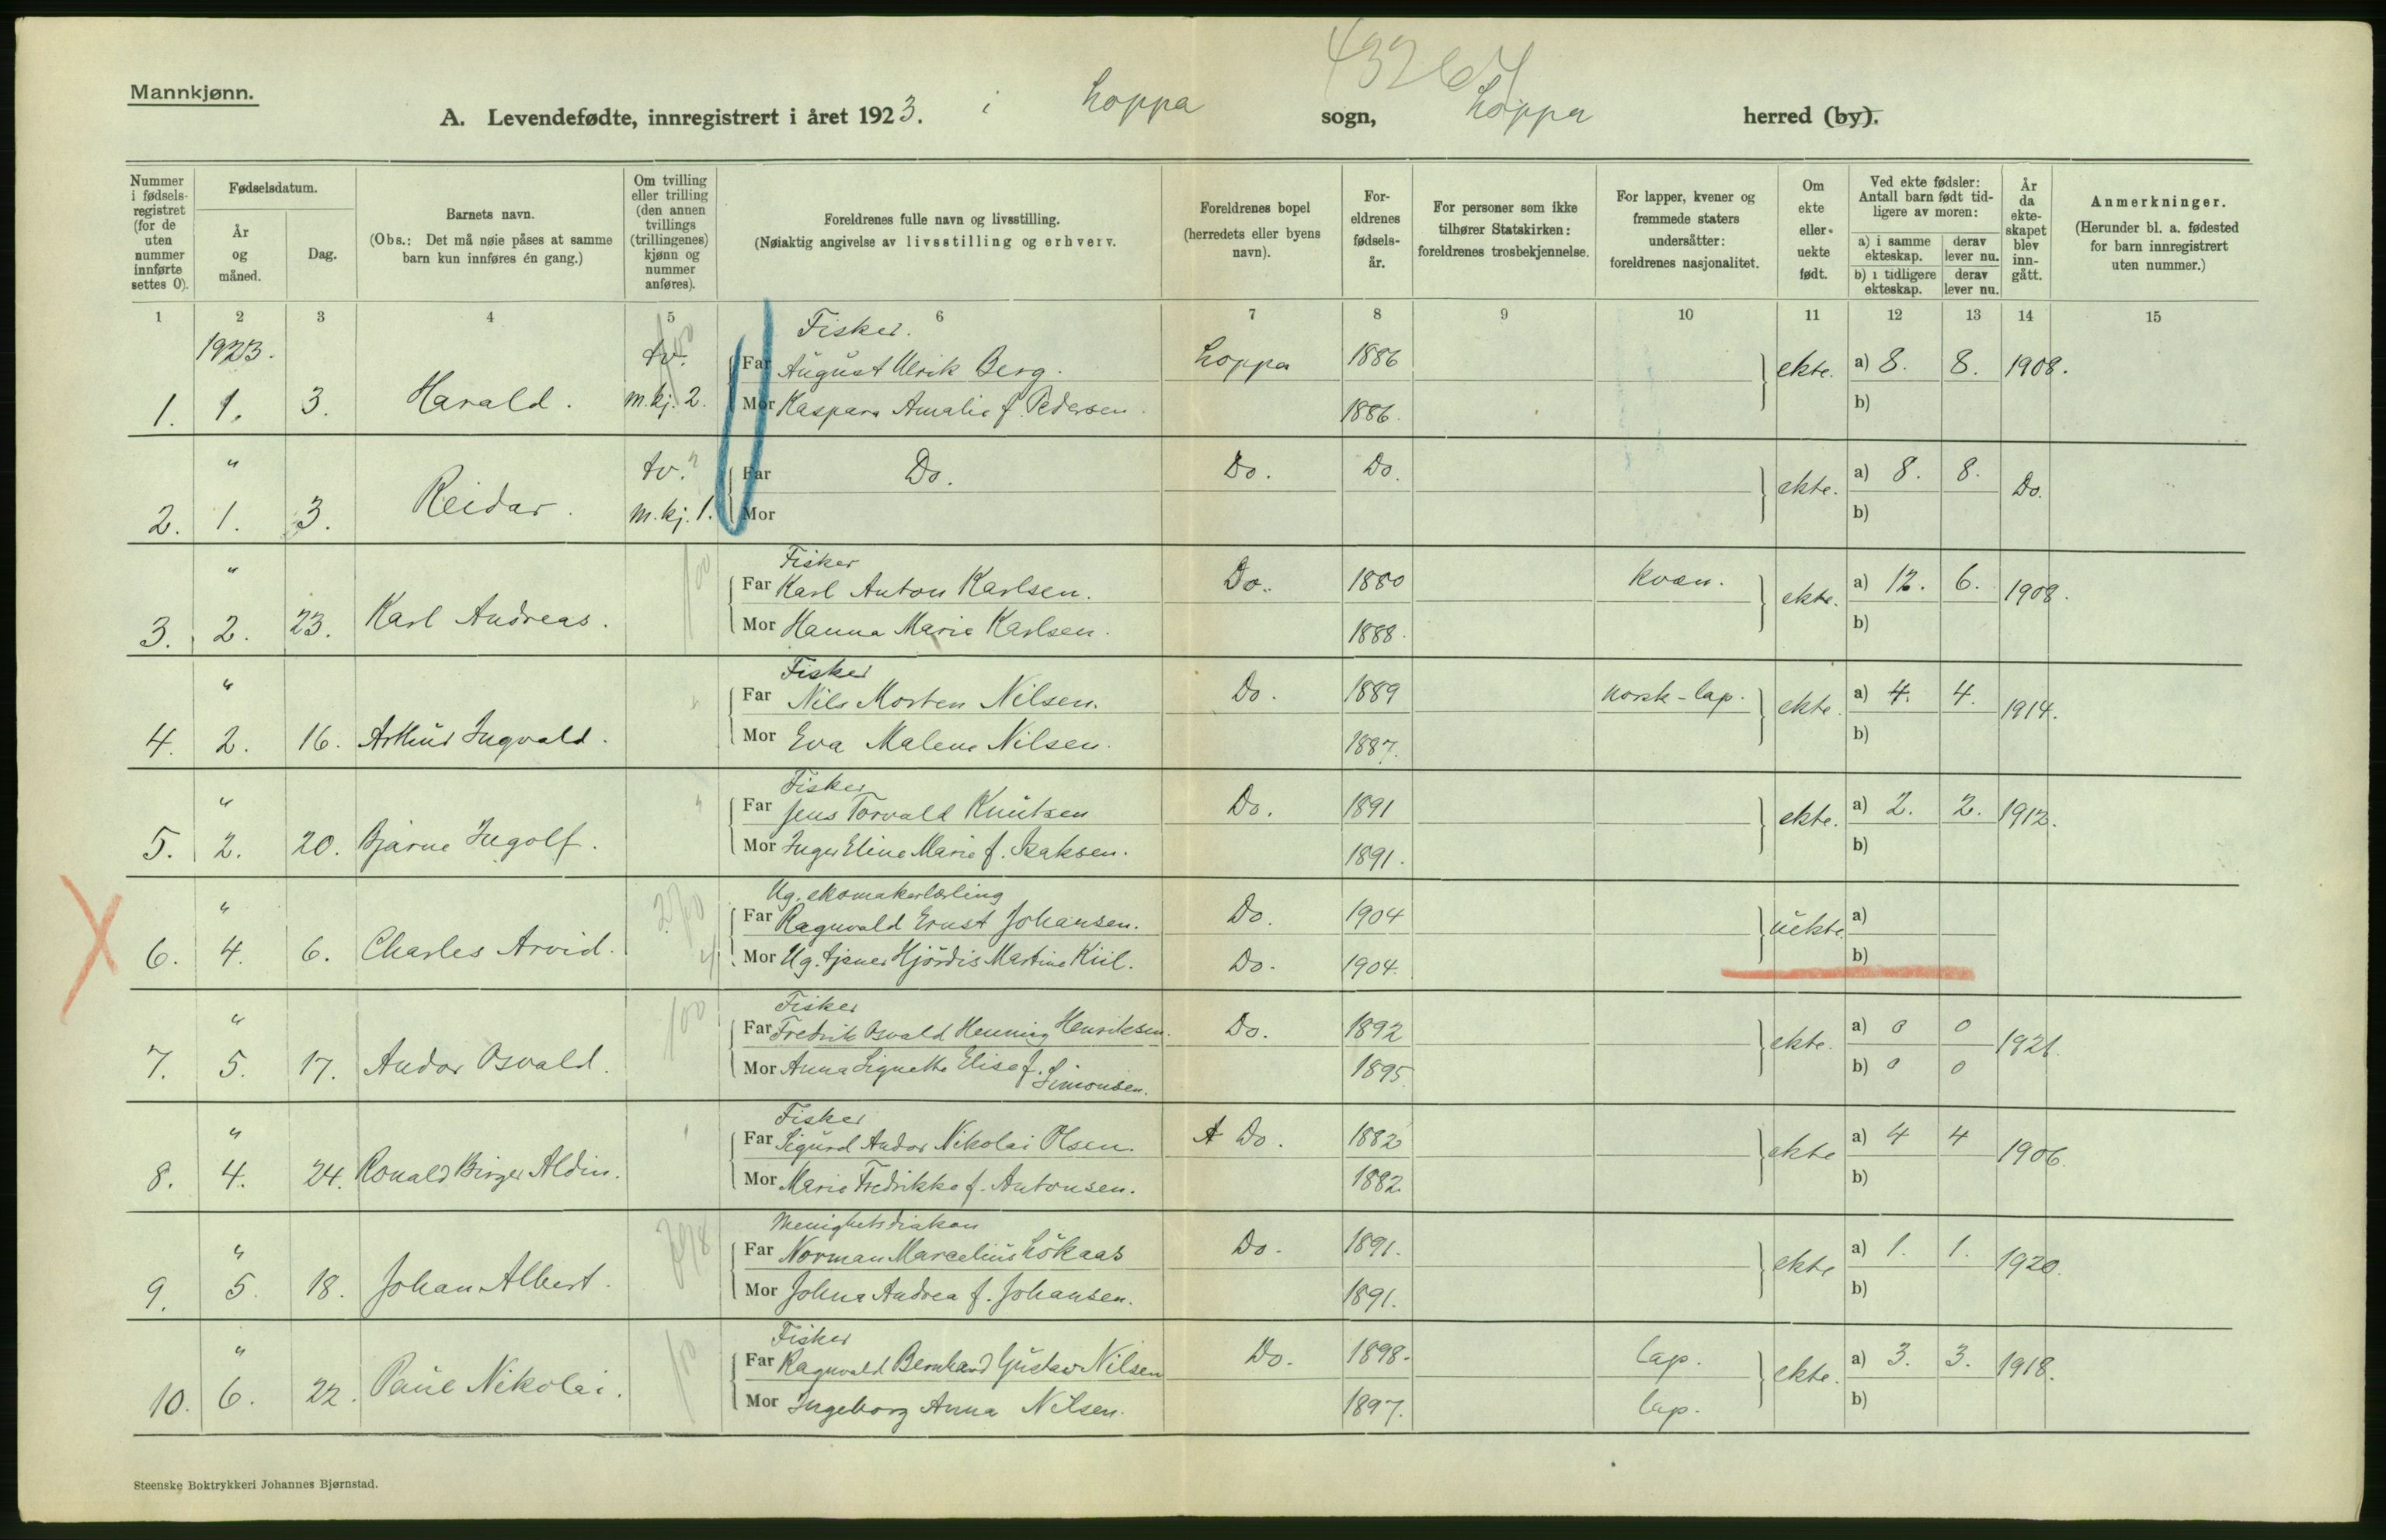 43267
Mannkjønn.
A. Levendefødte, innregistrert i året 1923. i Loppa sogn, Loppa herred (by).
Nummer i fødselsregistret (for de uten nummer innførte settes 0).
Fødselsdatum.
År og måned.
Dag.
Barnets navn.
(Obs.: Det må nøie påses at samme barn kun innføres én gang.)
Om tvilling eller trilling (den annen tvillings (trillingenes) kjønn og nummer anføres).
Foreldrenes fulle navn og livsstilling.
(Nøiaktig angivelse av livsstilling og erhverv.
Foreldrenes bopel (herredets eller byens navn).
Foreldrenes fødselsår.
For personer som ikke tilhører Statskirken: foreldrenes trosbekjennelse.
For lapper, kvener og fremmede staters undersåtter: foreldrenes nasjonalitet.
Om ekte eller uekte født.
Ved ekte fødsler: Antall barn født tidligere av moren:
a) i samme ekteskap. derav lever nu.
b) i tidligere ekteskap. derav lever nu.
År da ekteskapet blev inngått.
Anmerkninger.
(Herunder bl. a. fødested for barn innregistrert uten nummer.)
1 2 3 4 5 6 7 8 9 10 11 12 13 14 15
1923. tv. Fisker.
Far August Ulrik Berg. Loppa 1886 ekte. a) 8. 8. 1908.
1. 1. 3. Harald. m.kj. 2. Mor Kaspara Amalie f. Pedersen. 1886. b)
" tv. Far Do. Do. Do. ekte. a) 8. 8. Do.
2. 1. 3. Reidar. m.kj. 1. Mor b)
" Fisker
Far Karl Anton Karlsen. Do. 1880 kvæn. ekte. a) 12. 6. 1908.
3. 2. 23. Karl Andreas. Mor Hanna Marie Karlsen. 1888. b)
" Fisker
Far Nils Morten Nilsen. Do. 1889 norsk-lap. ekte. a) 4. 4. 1914.
4. 2. 16. Arthur Ingvald. Mor Eva Malene Nilsen. 1887. b)
" Fisker
Far Jens Torvald Knutsen Do. 1891 ekte. a) 2. 2. 1912.
5. 2. 20. Bjarne Ingolf. Mor Inger Eline Marie f. Isaksen. 1891. b)
" Ug. skomakerlærling
Far Ragnvald Ernst Johansen. Do. 1904 uekte a)
6. 4. 6. Charles Arvid. Mor Ug. tjener Hjørdis Martine Kiil. Do. 1904. b)
" 100 Fisker
Far Fredrik Osvald Henning Henriksen. Do. 1892 ekte. a) 0 0 1921.
7. 5. 17. Andor Osvald. Mor Anna Signette Elise f. Simonsen. 1895. b) 0 0
" Fisker
Far Sigurd Andor Nikolai Olsen. Do. 1882 ekte a) 4 4 1906.
8. 4. 24. Ronald Birger Aldin. Mor Marie Fredrikke f. Antonsen. 1882 b)
" Menighetsdiakon
Far Norman Marcelius Løkaas Do. 1891. ekte a) 1. 1. 1920.
9. 5. 18. Johan Albert. Mor Johna Andrea f. Johansen. 1891. b)
" Fisker
Far Ragnvald Bernhard Gustav Nilsen Do. 1898. lap. ekte. a) 3. 3. 1918.
10. 6. 22. Paul Nikolai. Mor Ingeborg Anna Nilsen. 1897. lap. b)
Steenske Boktrykkeri Johannes Bjørnstad.